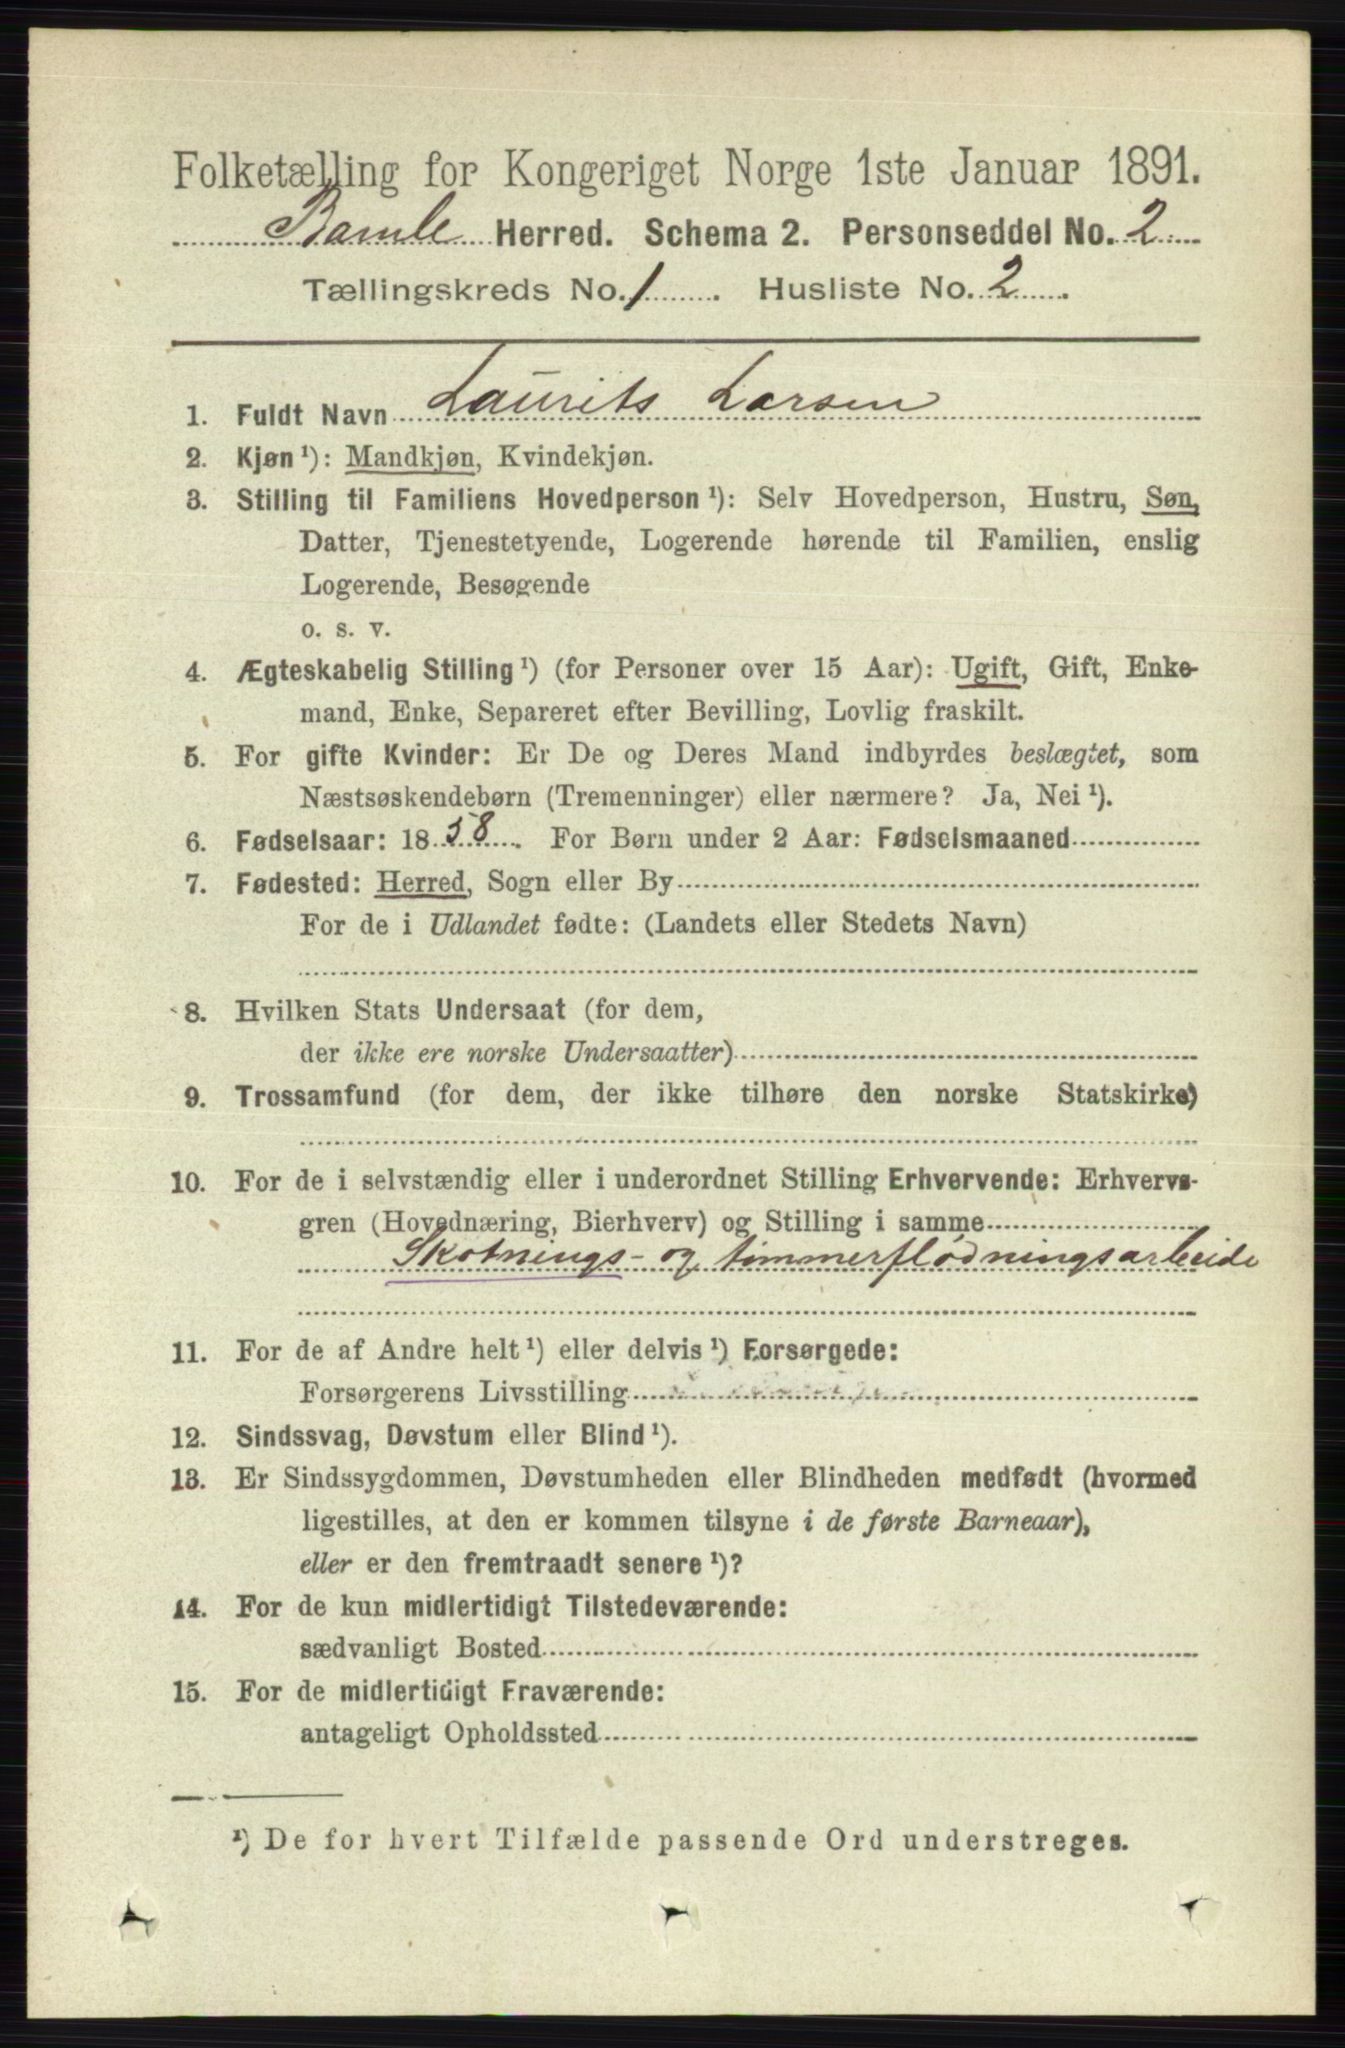 Folketælling for Kongeriget Norge 1ste Januar 1891.
Bamle Herred. Schema 2. Personseddel No. 2
Tællingskreds No. 1. Husliste No. 2.
1. Fuldt Navn Laurits Larsen
2. Kjøn¹): Mandkjøn, Kvindekjøn.
3. Stilling til Familiens Hovedperson¹): Selv Hovedperson, Hustru, Søn,
Datter, Tjenestetyende, Logerende hørende til Familien, enslig
Logerende, Besøgende
o. s. v.
4. Ægteskabelig Stilling¹) (for Personer over 15 Aar): Ugift, Gift, Enke-
mand, Enke, Separeret efter Bevilling, Lovlig fraskilt.
5. For gifte Kvinder: Er De og Deres Mand indbyrdes beslægtet, som
Næstsøskendebørn (Tremenninger) eller nærmere? Ja, Nei¹).
6. Fødselsaar: 1858. For Børn under 2 Aar: Fødselsmaaned
7. Fødested: Herred, Sogn eller By
For de i Udlandet fødte: (Landets eller Stedets Navn)
8. Hvilken Stats Undersaat (for dem,
der ikke ere norske Undersaatter)
9. Trossamfund (for dem, der ikke tilhøre den norske Statskirke)
10. For de i selvstændig eller i underordnet Stilling Erhvervende: Erhvervs-
gren (Hovednæring, Bierhverv) og Stilling i samme
Skotnings- og tømmerflødningsarbeide
11. For de af Andre helt¹) eller delvis¹) Forsørgede:
Forsørgerens Livsstilling
12. Sindssvag, Døvstum eller Blind¹).
13. Er Sindssygdommen, Døvstumheden eller Blindheden medfødt (hvormed
ligestilles, at den er kommen tilsyne i de første Barneaar),
eller er den fremtraadt senere¹)?
14. For de kun midlertidigt Tilstedeværende:
sædvanligt Bosted
15. For de midlertidigt Fraværende:
antageligt Opholdssted
¹) De for hvert Tilfælde passende Ord understreges.